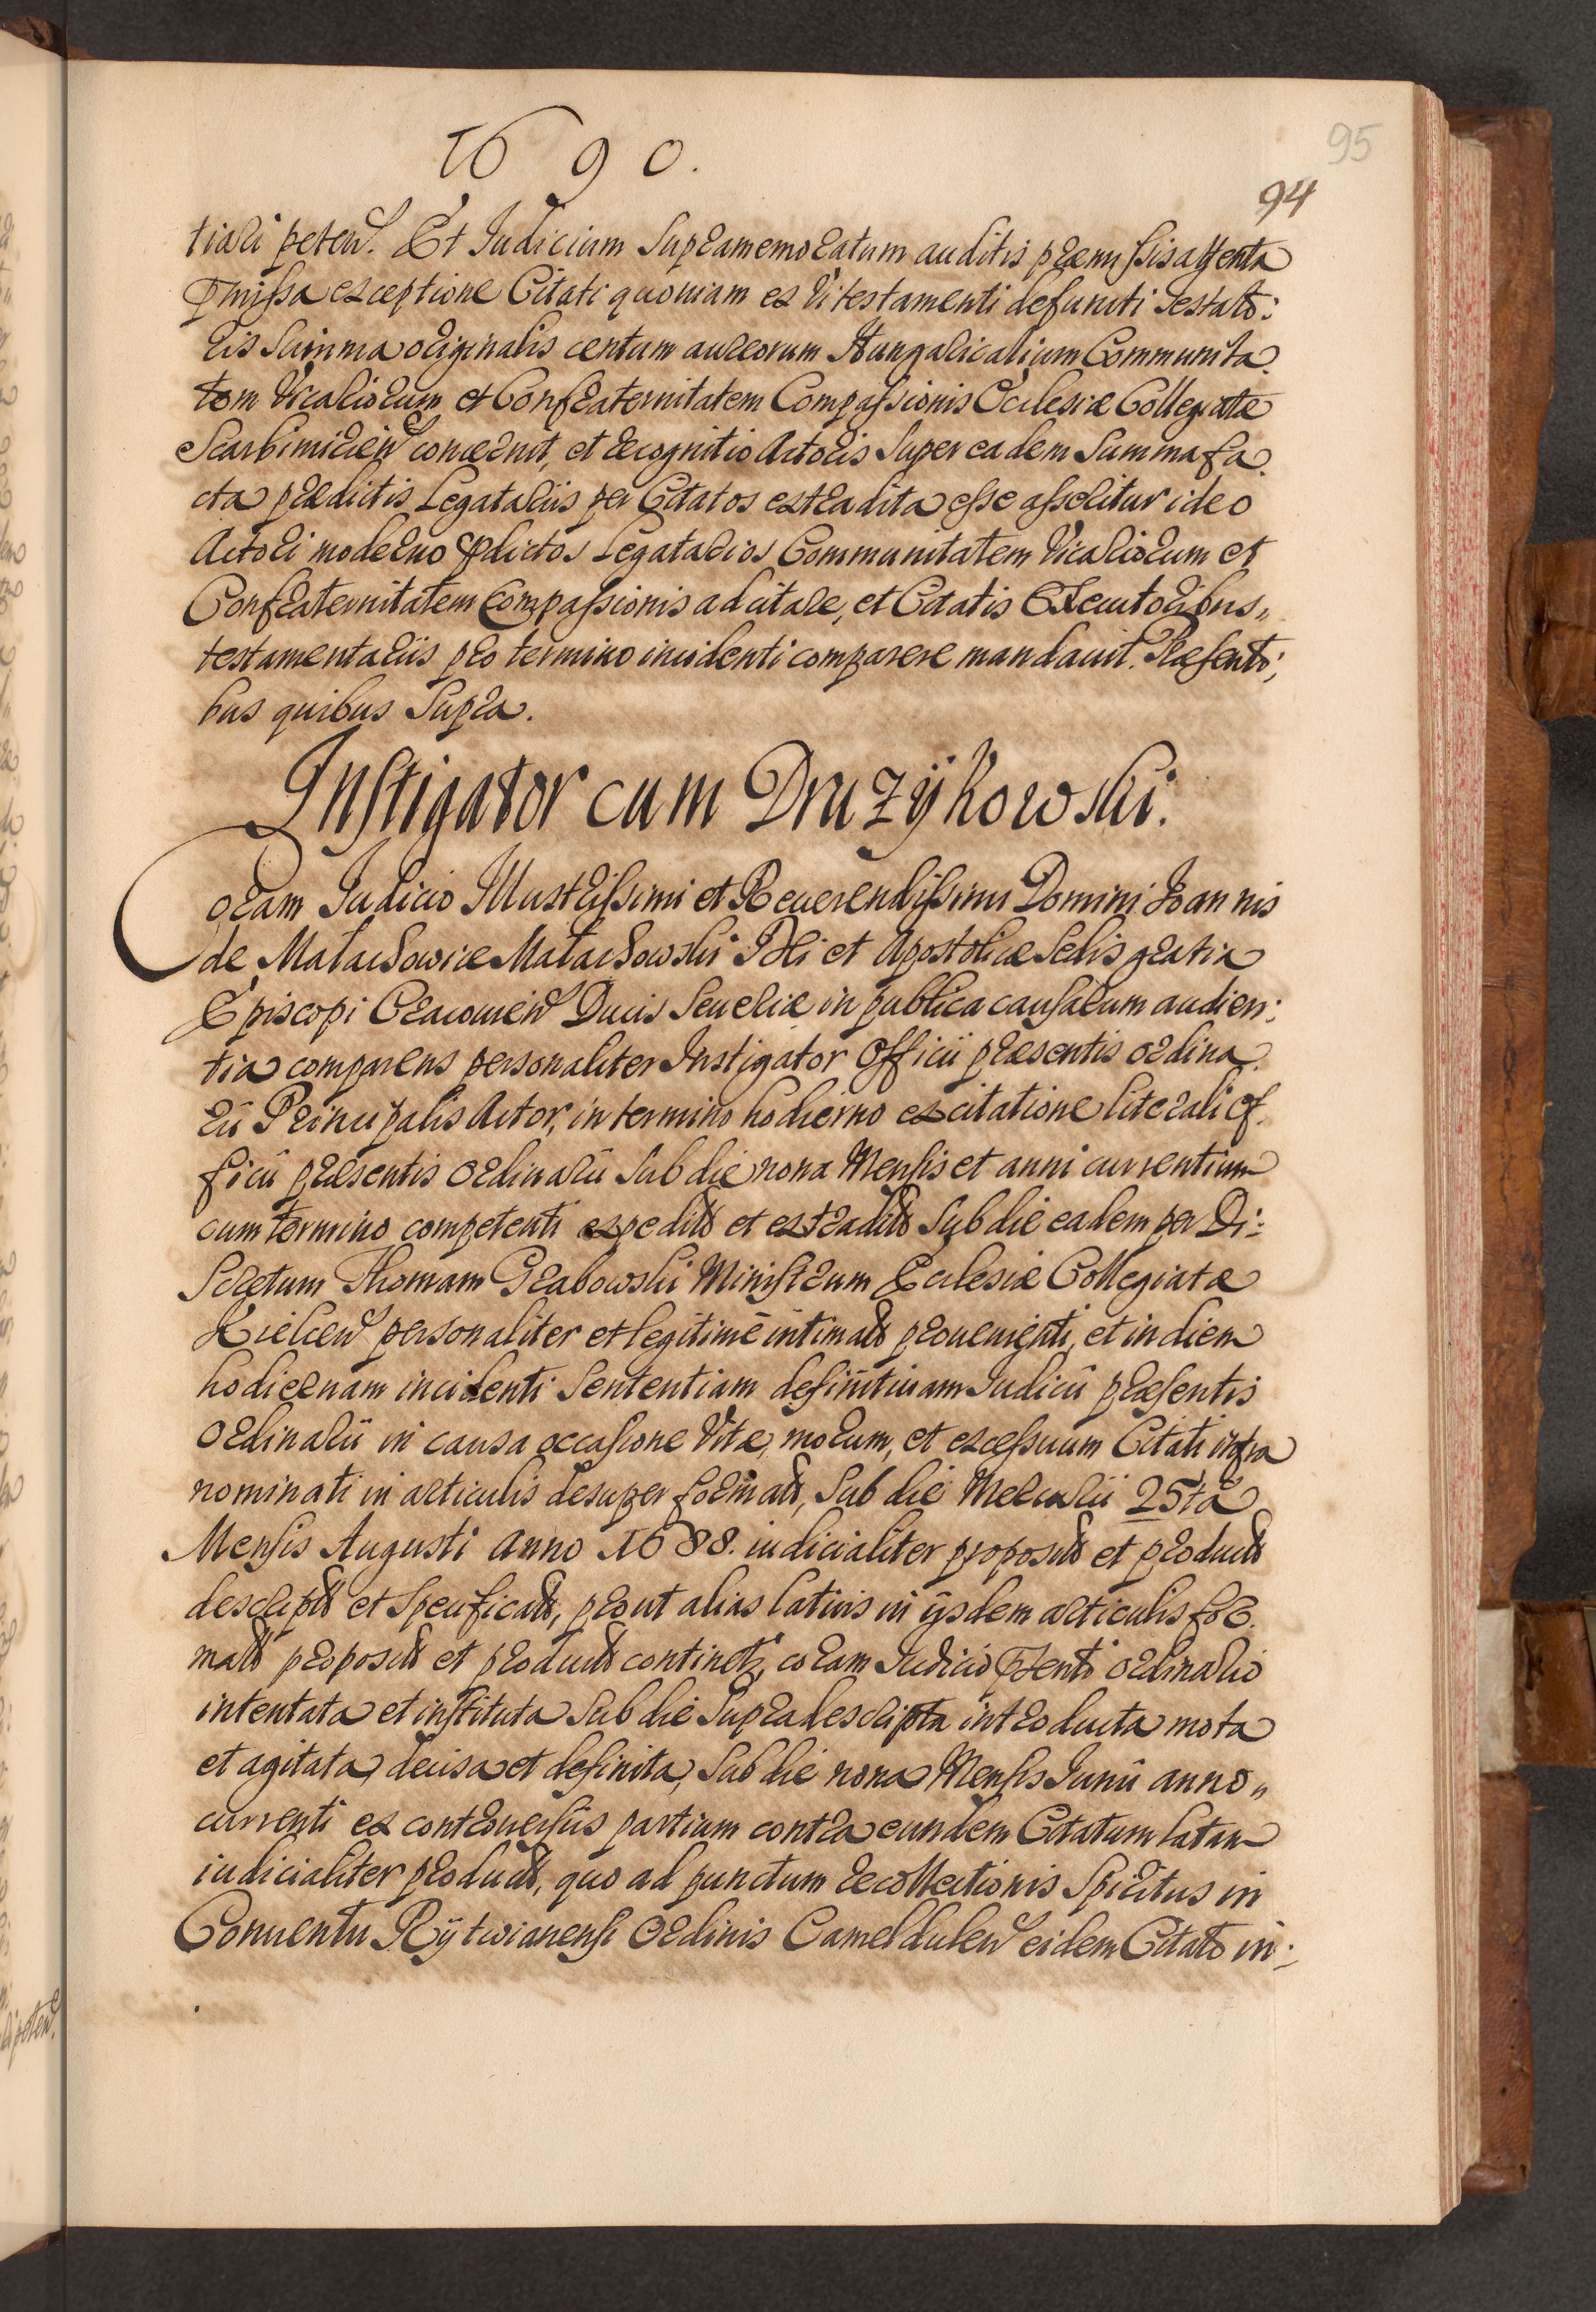 1690.
95
94
tiari peten. Et Iudicium Supramemoratum auditis præmissis attenta
præmissa exceptione Citati quoniam ex Vi testamenti defuncti Testato:
ris Summa originalis centum aureorum Hungaricalium Communita
tem Vicariorum et Confraternitatem Compassionis Ecclesiæ Collegiatæ
Scarbimirien concernit, et recognitio Actoris Super eadem Summa fa
cta prædictis Legatariis per Citatos extradita esse asseritur ideo
Actori moderno prædictos Legatarios Communitatem Vicariorum et
Confraternitatem Compassionis adcitare, et Citatis Executoribus„
testamentariis pro termino incidenti comparere mandavit. Præsenti:
bus quibus Supra.
Instigator cum Druzÿkowski.
Coram Iudicio Illustrissimi et Reverendissimi Domini Ioannis
de Małachowice Małachowski Dei et Apostolicæ Sedis gratia
Episcopi Cracovien Ducis Severiæ in publica causarum audien:
tia comparens personaliter Instigator Officii præsentis ordina
rii Principalis Actor, in termino hodierno ex citatione literali Of
ficii præsentis Ordinarii Sub die nona Mensis et anni currentium
cum termino competenti expedita et extradita Sub die eadem per Di:
scretum Thomam Grabowski Ministrum Ecclesiæ Collegiatæ
Kielcen personaliter et legitimè intimata provenienti, et in diem
hodiernam incidenti Sententiam definitivam Iudicii præsentis
Ordinarii in causa occasione Vitæ, morum, et excessuum Citati infra
nominati in articulis desuper formatis, Sub die Mercurii 25tâ
Mensis Augusti Anno 1688. iudicialiter propositis et productis
descriptis et Specificatis, prout alias latius in ijsdem articulis for
matis propositis et productis continetur, coram Iudicio præsenti ordinario
intentata et instituta Sub die Supradescripta introducta mota
et agitata, decisa et definita, Sub die nona Mensis Iunii anno„
currenti ex controversiis partium contra eundem Citatum latam
iudicialiter producit, quo ad punctum recollectionis Spiritus in
Conventu Rÿtwianensi Ordinis Cameldulen eidem Citato in: